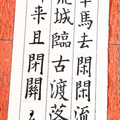 車馬去閑閑流
城臨古渡落
來且閉關